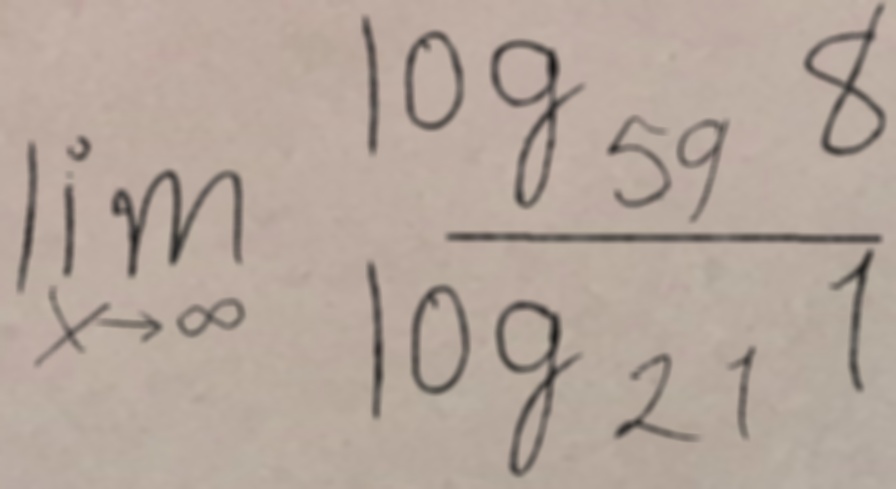 lim x→∞ log₅₉ 8 / log₂₁ 1